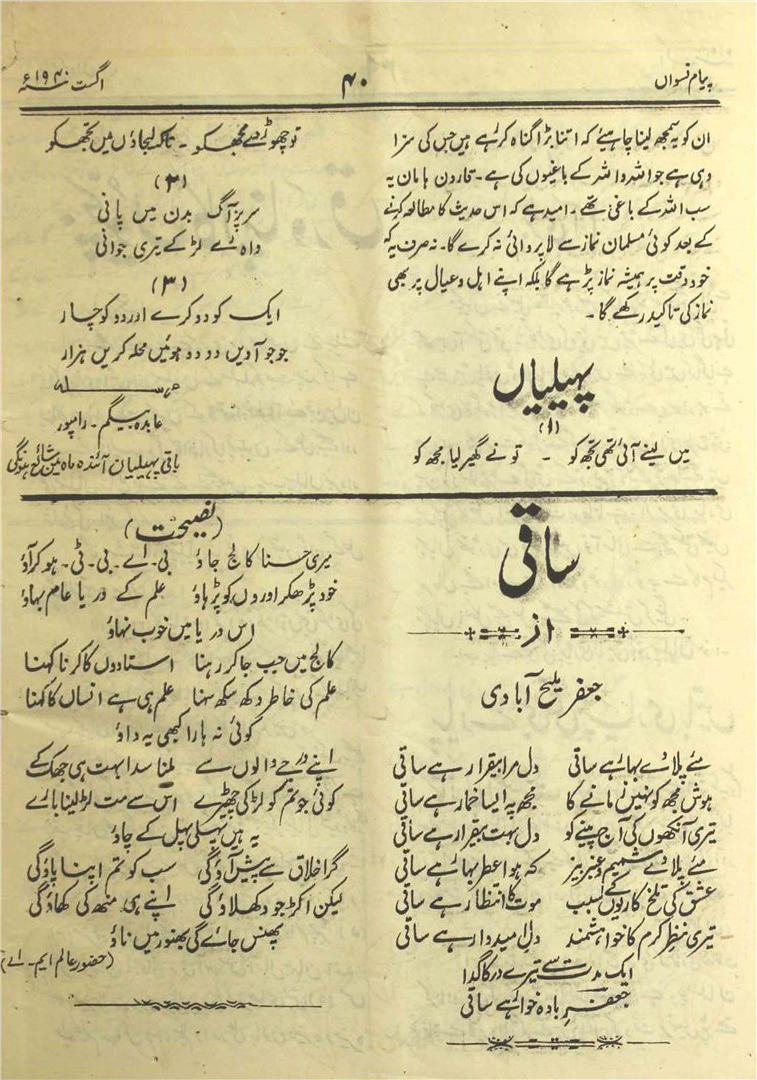 پیام نسواں
۴۰
اگست سنہ ۱۹۴۰ء
ان کو یہ سمجھ لینا چاہیئے کہ اتنا بڑا گناہ کر رہے ہیں جس کی سزا
وہی ہے جو اللہ و اللہ کے باغیوں کی ہے۔ قارون ہامان یہ
سب اللہ کے باغی تھے۔ امید ہے کہ اس حدیث کا مطالعہ کرنے
کے بعد کوئی مسلمان نماز سے لاپروائی نہ کرے گا۔ نہ صرف یہ کہ
خود وقت پر ہمیشہ نماز پڑہے گا بلکہ اپنے اہل و عیال پر بھی
نماز کی تاکید رکھے گا۔
پہیلیاں
(۱)
میں لینے آئی تھی تجھ کو ۔ تو نے گھیر لیا مجھ کو
تو چھوڑ دے مجھکو ۔ تاکہ لیجاؤں میں تجھکو
(۲)
سر پر آگ بدن میں پانی
واہ رے لڑکے تیری جوانی
(۳)
ایک کو دو کرے اور دو کو چار
جو جو آویں دو دو ہوئیں محلہ کریں ہزار
مرسلہ
عابدہ بیگم۔ رامپور
باقی پہیلیاں آئندہ ماہ میں شائع ہونگی
ساقی
از
جعفر ملیح آبادی
مئے پلادے بہار ہے ساقی دل مرا بیقرار ہے ساقی
ہوش مجھ کو نہیں زمانے کا مجھ پہ ایسا خمار ہے ساقی
تیری آنکھوں کی آج پینے کو دل بہت بیقرار ہے ساقی
مئے پلا دے شمیم و عنبر بیز کہ ہوا عطر بہار ہے ساقی
عشق کی تلخ کاریوں کے سبب موت کا انتظار ہے ساقی
تیری نظرِ کرم کا خواہشمند دل امیدوار ہے ساقی
ایک مدت سے تیرے در کا گدا
جعفرِ بادہ خوار ہے ساقی
(نصیحت)
میری حسنا کالج جاؤ بی۔ اے۔ بی۔ ٹی۔ ہو کر آؤ
خود پڑھکر اوروں کو پڑہاؤ علم کے دریا عام بہاؤ
اس دریا میں خوب نہاؤ
کالج میں جب جا کر رہنا استادوں کا کرنا کہنا
علم کی خاطر دکھ سکھ سہنا علم ہی ہے انساں کا گہنا
کوئی نہ ہارا کبھی یہ داؤ
اپنے درجے والوں سے ملنا سدا بہت ہی جھک کے
کوئی جو تم کو لڑکی چھیڑے اس سے مت لڑ لینا بارے
یہ ہیں سہیلی پہل کے چاؤ
گر اخلاق سے پیش آؤگی سب کو تم اپنا پاؤگی
لیکن اکڑ جو دکھلاؤگی اپنے ہی منھ کی کھاؤگی
پھنس جائے گی بھنور میں ناؤ
(حضور عالم ایم۔ اے)